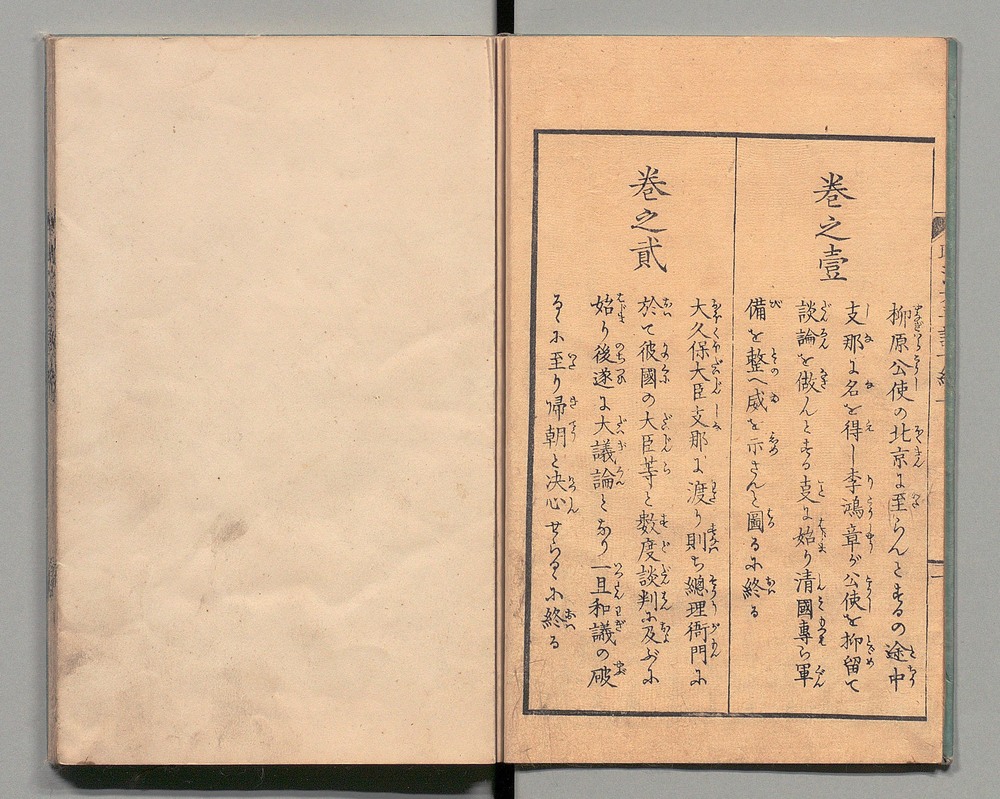 巻之壹
柳原公使の北京に至らんとするの途中
支那に名を得し李鴻章が公使を抑留て
談論を做んとする叓に始り清國專ら軍
備を整へ威を示さんと圖るに終る
巻之貳
大久保大臣支那に渡り則ち總理衙門に
於て彼國の大臣等と數度談判に及ぶに
始り後遂に大議論となり一旦和議の破
るゝに至り帰朝と决心せらるゝに終る